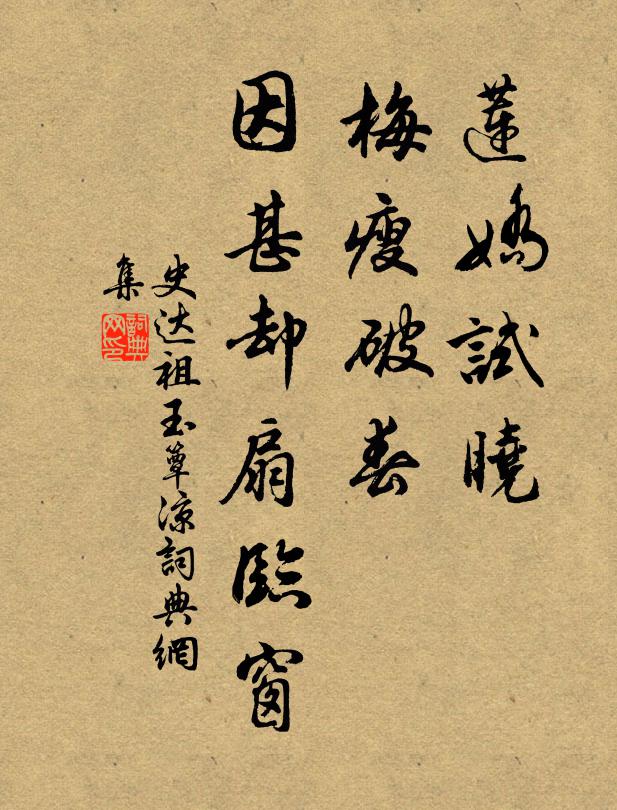 蓮嬌試曉
梅瘦破春
因甚却扇臨窗
史达祖玉蕈涼詞典網
集
詞典
网印